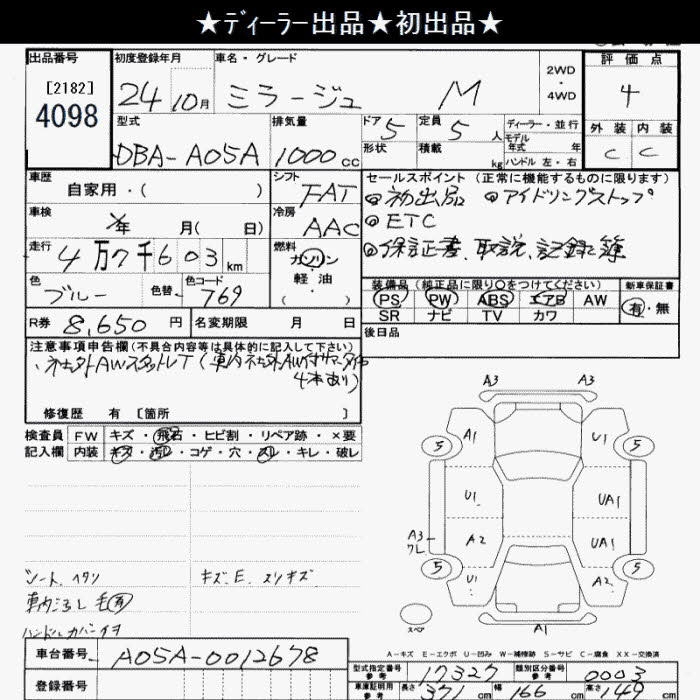 ★ディーラー出品★初出品★
出品番号 初度登録年月 車名・グレード 2WD・4WD 評価点
[2182] 4098
24 10月 ミラージュ M 4
型式 排気量 ドア 5 定員 5 人 ディーラー・並行 外装 内装
DBA-A05A 1000cc 形状 積載 kg モデル年式 年 ハンドル 左・右 C C
車歴 自家用・( ) シフト FAT セールスポイント (正常に機能するものに限ります)
◎初出品 ◎アイドリングストップ
車検 年 月( 日) 冷房 AAC ◎ETC
走行 4万7千603km 燃料 ガソリン 軽油 ( ) ◎保証書、取説、記録簿
色 ブルー 色替 カラーコード 769
装備品 (純正品に限り○をつけてください) 新車保証書
PS PW ABS エアB AW 有・無
SR ナビ TV カワ
R券 8,650円 名変期限 月 日 後日品
注意事項申告欄(不具合内容等は具体的に記入して下さい)
社外AWスタットレスT(車内社外AW付サマータイヤ
4本あり)
修復歴 有 [箇所 ]
検査員 FW キズ・飛石・ヒビ割・リペア跡・×要
記入欄 内装 キズ・汚レ・コゲ・穴・スレ・キレ・破レ
A3 A3
5 A1 U1 5
U1 UA1
A3 ワレ A2 UA1
5 U1 A2 5
スペア A1
シート、ヘタリ キズ.E.スリキズ
車内汚し毛有
ハンドルカバーイヤ
A-キズ E-エクボ U-凹み W-補修跡 S-サビ C-腐食 XX-交換済
車台番号 A05A-0012678
型式指定番号 参考 17327 類別区分番号 参考 0003
登録番号 車庫証明用 参考 長さ 371cm 幅 166cm 高さ 149cm